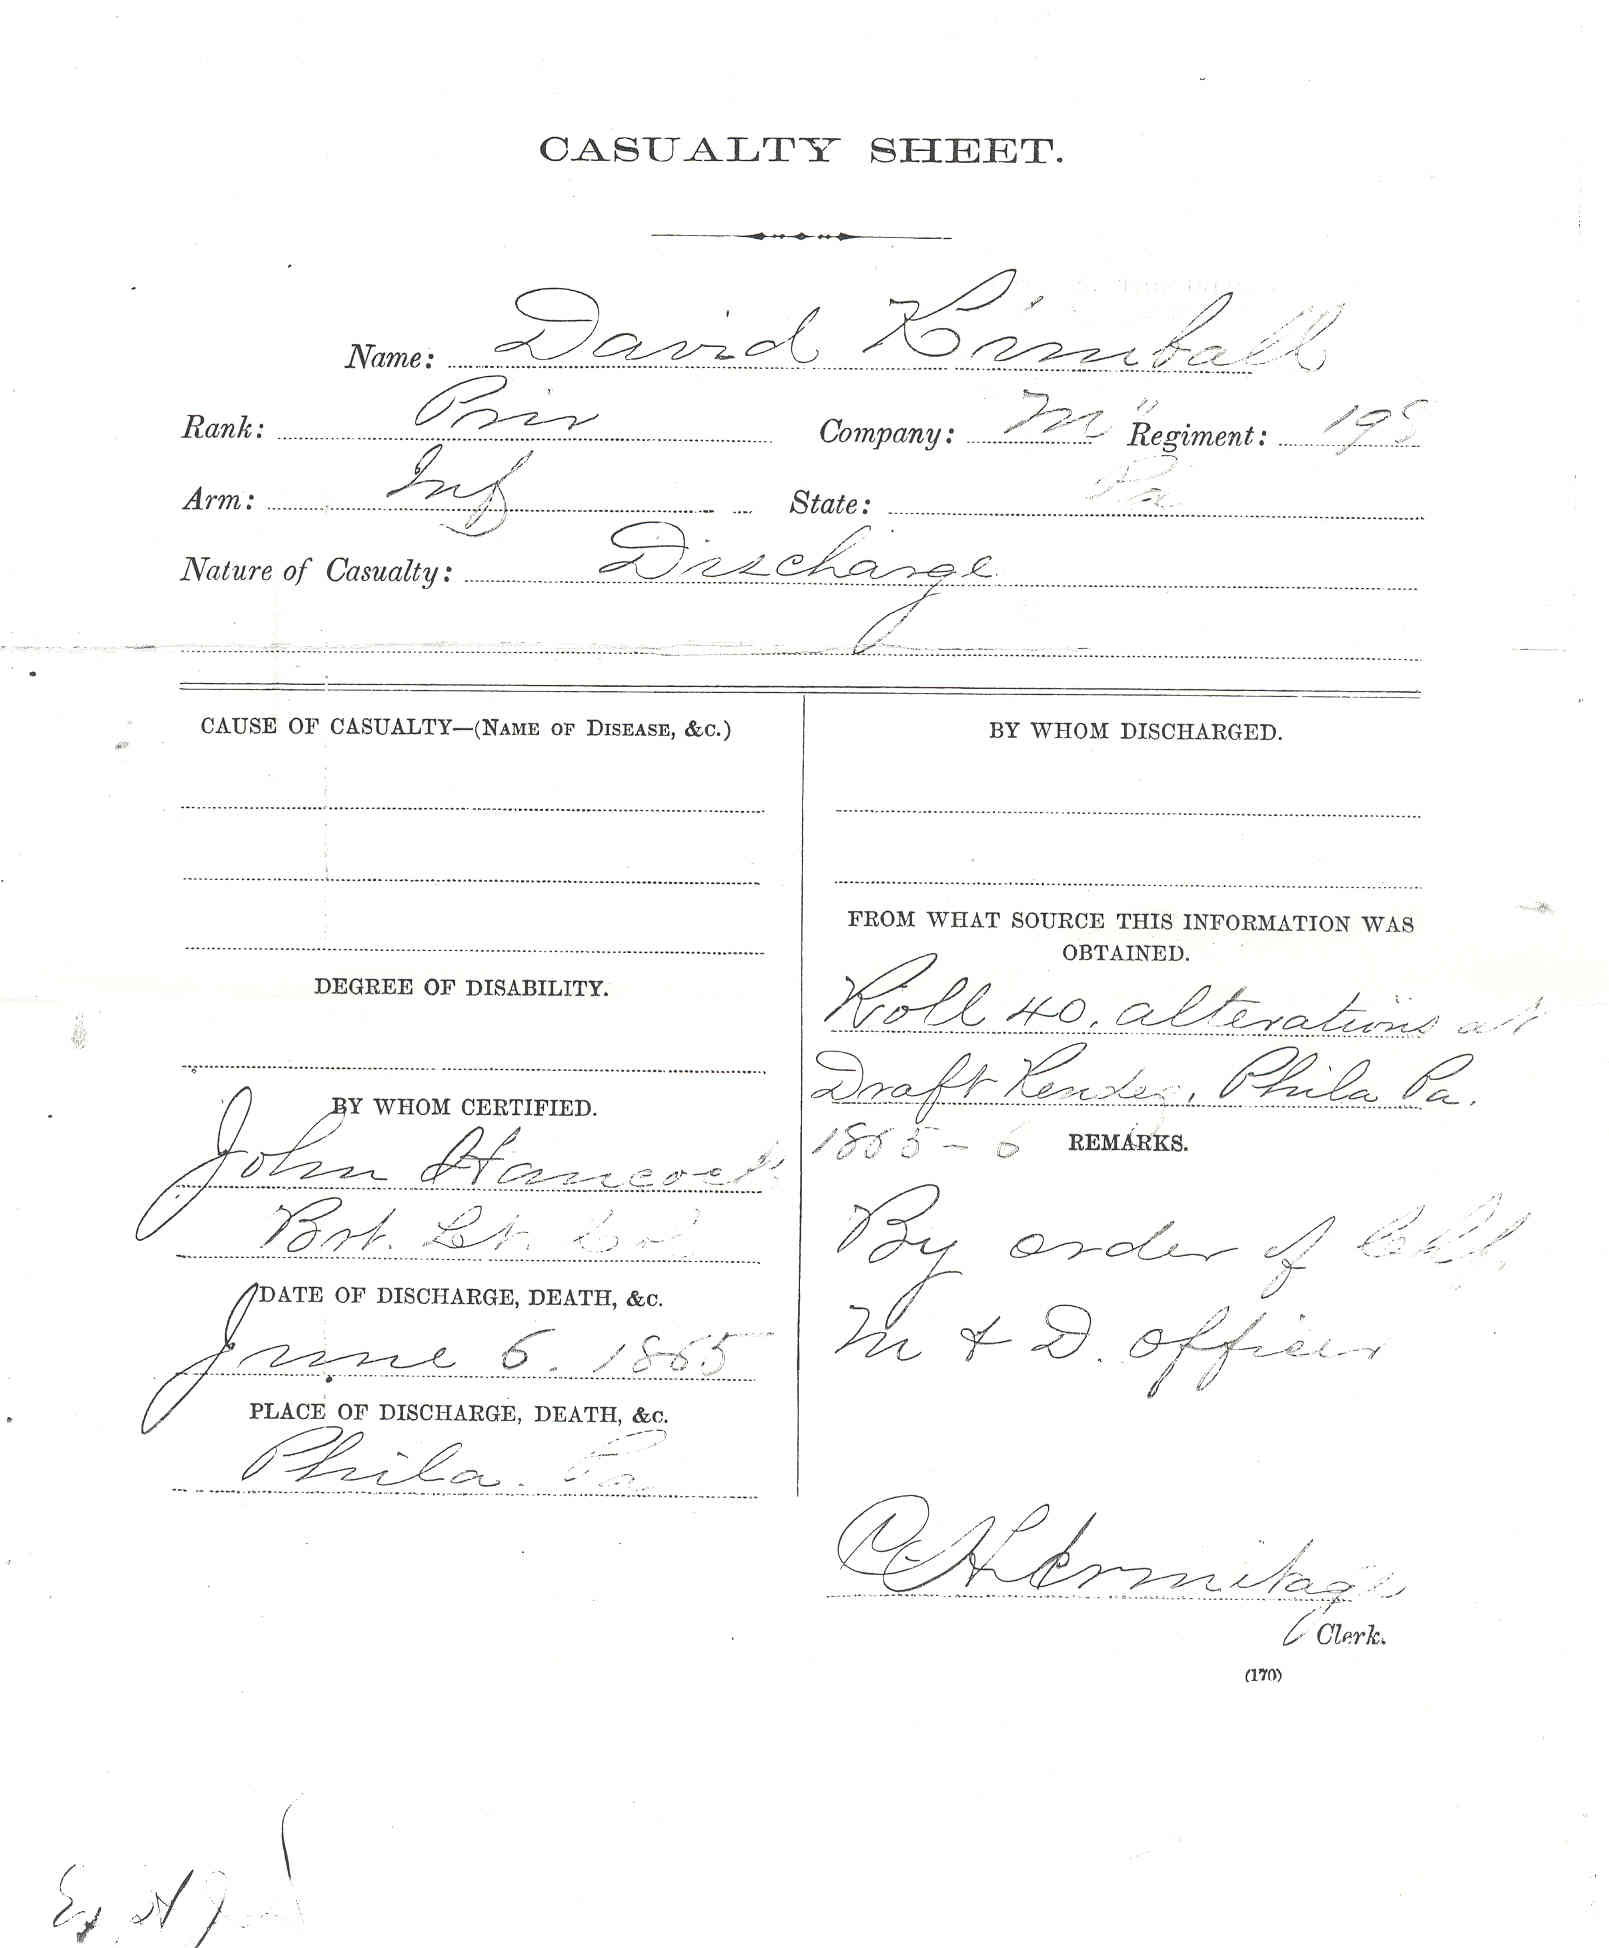 CASUALTY SHEET.
Name: David Kimball
Rank: Priv Company: "M" Regiment: 195
Arm: Inf State: Pa
Nature of Casualty: Discharge
CAUSE OF CASUALTY—(NAME OF DISEASE, &C.)
DEGREE OF DISABILITY.
BY WHOM CERTIFIED.
John Hancock
Bvt. Lt. Col
DATE OF DISCHARGE, DEATH, &C.
June 6. 1865
PLACE OF DISCHARGE, DEATH, &C.
Phila. Pa
BY WHOM DISCHARGED.
FROM WHAT SOURCE THIS INFORMATION WAS
OBTAINED.
Roll 40. alterations at
Draft Rendez. Phila Pa.
1865-6
REMARKS.
By order of
M & D. officer
C H Hermitage
Clerk.
(170)